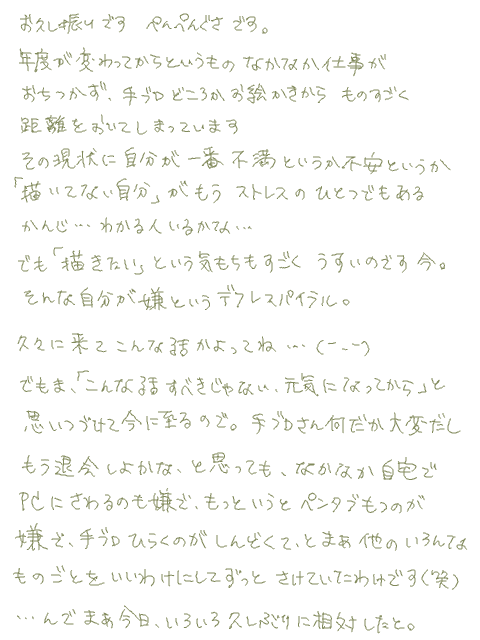 お久し振りです ぺんぺんぐさです。
年度が変わってからというもの なかなか仕事が
おちつかず、手ブロどころかお絵かきから ものすごく
距離をおいてしまっています
その現状に自分が一番不満というか不安というか
「描いてない自分」がもう ストレスの ひとつでもある
かんじ…わかる人いるかな…
でも「描きたい」という気もちもすごく うすいのです今。
そんな自分が嫌というデフレスパイラル。
久々に来て こんな話かよってね…(ー.ー)
でもま、「こんな話すべきじゃない、元気になってから」と
思いつづけて今に至るので。手ブロさん何だか大変だし
もう退会しよかな、と思っても、なかなか自宅で
PCにさわるのも嫌で、もっというとペンタブもつのが
嫌で、手ブロひらくのがしんどくて、とまぁ他のいろんな
ものごとをいいわけにしてずっと さけていたわけです(笑)
…んで まぁ今日、いろいろ久しぶりに相対したと。